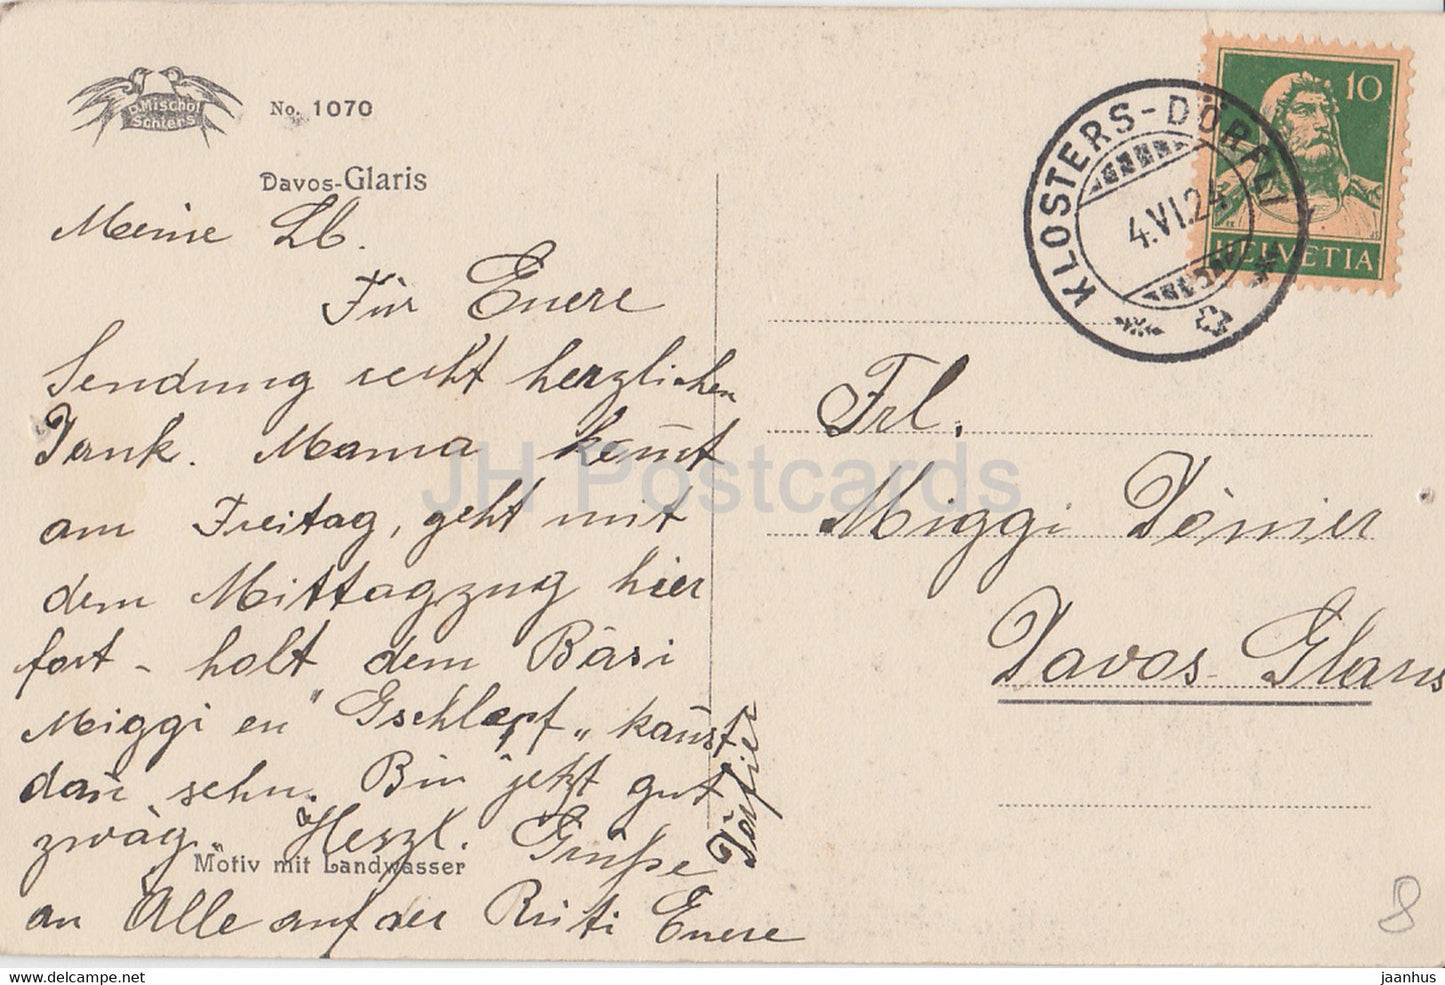 D. Mischol
Schiers
No. 1070
Davos-Glaris
Meine Lb.
Für Euere
Sendung recht herzlichen
Dank. Mama kom̅t
am Freitag, geht mit
dem Mittagzug hier
fort - holt dem Bäsi
Miggi en "Gschlepf" kan̅st
dan̅ sehn. Bin jetzt gut
zwäg. Herzl. Grüße
an Alle auf der Rüti Euere
Motiv mit Landwasser
KLOSTERS-DÖRFLI
4.VI.24
10
HELVETIA
Frl.
Miggi
Davos-Glaris
8
JH Postcards
jaanhus
https://www.jhpostcard.net